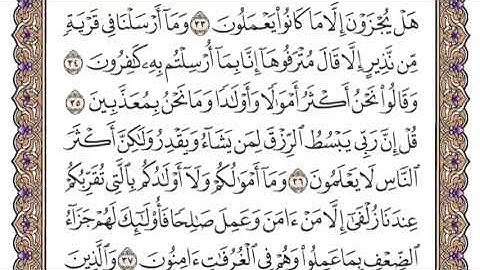 هَلۡ يُجۡزَوۡنَ إِلَّا مَا كَانُواْ يَعۡمَلُونَ ٣٣ وَمَآ أَرۡسَلۡنَا فِي قَرۡيَةٖ
مِّن نَّذِيرٍ إِلَّا قَالَ مُتۡرَفُوهَآ إِنَّا بِمَآ أُرۡسِلۡتُم بِهِۦ كَٰفِرُونَ ٣٤
وَقَالُواْ نَحۡنُ أَكۡثَرُ أَمۡوَٰلٗا وَأَوۡلَٰدٗا وَمَا نَحۡنُ بِمُعَذَّبِينَ ٣٥
قُلۡ إِنَّ رَبِّي يَبۡسُطُ ٱلرِّزۡقَ لِمَن يَشَآءُ وَيَقۡدِرُ وَلَٰكِنَّ أَكۡثَرَ
ٱلنَّاسِ لَا يَعۡلَمُونَ ٣٦ وَمَآ أَمۡوَٰلُكُمۡ وَلَآ أَوۡلَٰدُكُم بِٱلَّتِي تُقَرِّبُكُمۡ
عِندَنَا زُلۡفَىٰٓ إِلَّا مَنۡ ءَامَنَ وَعَمِلَ صَٰلِحٗا فَأُوْلَٰٓئِكَ لَهُمۡ جَزَآءُ
ٱلضِّعۡفِ بِمَا عَمِلُواْ وَهُمۡ فِي ٱلۡغُرُفَٰتِ ءَامِنُونَ ٣٧ وَٱلَّذِينَ